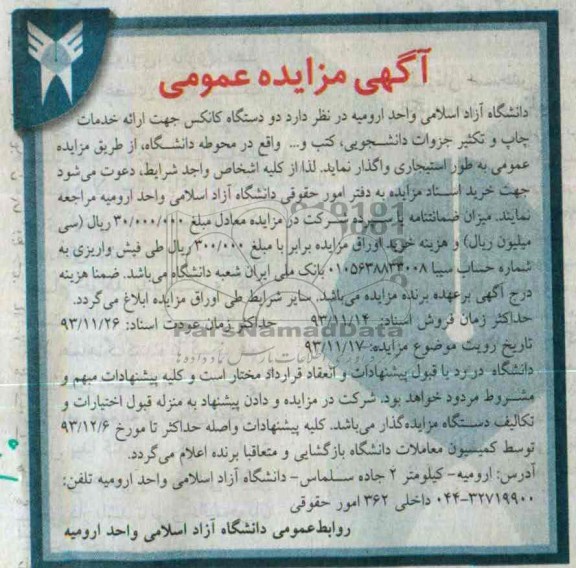 آگهی مزایده عمومی
دانشگاه آزاد اسلامی واحد ارومیه در نظر دارد دو دستگاه کانکس جهت ارائه خدمات
چاپ و تکثیر جزوات دانشـجویی، کتب و... واقع در محوطه دانشـگاه، از طریق مزایده
عمومی به طور استیجاری واگذار نماید. لذا از کلیه اشخاص واجد شرایط، دعوت می‌شود
جهت خرید اسـناد مزایده به دفتر امور حقوقی دانشگاه آزاد اسلامی واحد ارومیه مراجعه
نمایند. میزان ضمانتنامه یا سپرده شـرکت در مزایده معادل مبلغ ۳۰/۰۰۰/۰۰۰ ریال (سی
میلیون ریال) و هزینه خرید اوراق مزایده برابر با مبلغ ۳۰۰/۰۰۰ ریال طی فیش واریزی به
شماره حساب سیبا ۰۱۰۵۶۳۸۸۲۳۰۰۸ بانک ملی ایران شعبه دانشگاه می‌باشد. ضمنا هزینه
درج آگهی برعهده برنده مزایده می‌باشد. سایر شرایط طی اوراق مزایده ابلاغ می‌گردد.
حداکثر زمان فروش اسناد: ۹۳/۱۱/۱۴ حداکثر زمان عودت اسناد: ۹۳/۱۱/۲۶
تاریخ رویت موضوع مزایده: ۹۳/۱۱/۱۷
ParsNamadData
دانشگاه در رد یا قبول پیشنهادات و انعقاد قرارداد مختار است و کلیه پیشنهادات مبهم و
مشـروط مردود خواهد بود. شرکت در مزایده و دادن پیشنهاد به منزله قبول اختیارات و
تکالیف دسـتگاه مزایده‌گذار می‌باشد. کلیه پیشنهادات واصله حداکثر تا مورخ ۹۳/۱۲/۶
توسط کمیسیون معاملات دانشگاه بازگشایی و متعاقبا برنده اعلام می‌گردد.
آدرس: ارومیه- کیلومتر ۲ جاده سـلماس- دانشگاه آزاد اسلامی واحد ارومیه تلفن:
۰۴۴-۳۲۷۱۹۹۰۰ داخلی ۳۶۲ امور حقوقی
روابط عمومی دانشگاه آزاد اسلامی واحد ارومیه